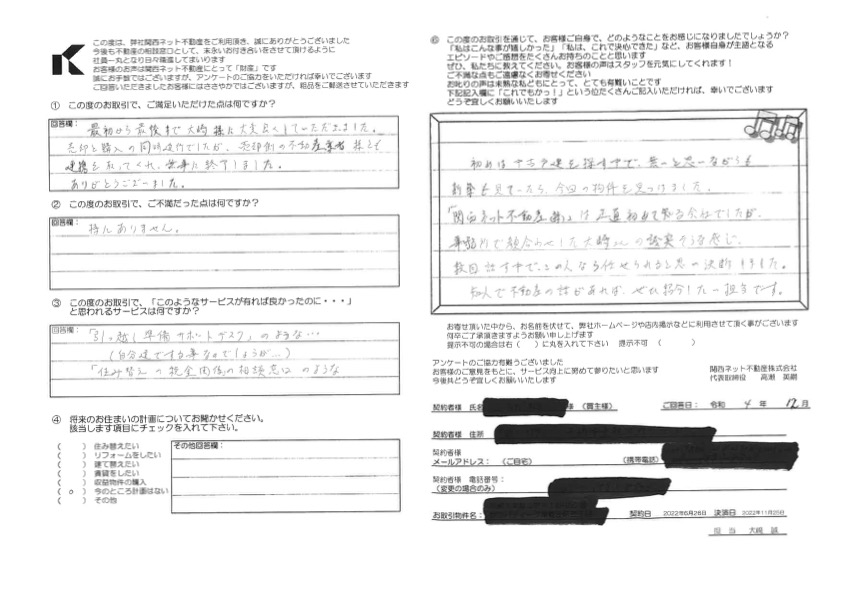 この度は、弊社関西ネット不動産をご利用頂き、誠にありがとうございました
今後も不動産の相談窓口として、末永いお付き合いをさせて頂けるように
社員一丸となり日々精進してまいります
お客様のお声は関西ネット不動産にとって「財産」です
誠にお手数ではございますが、アンケートのご協力をいただければ幸いでございます
ご回答いただきましたお客様にはささやかではございますが、粗品をご郵送させていただきます
① この度のお取引で、ご満足いただけた点は何ですか？
回答欄：
最初から最後まで大崎様に大変良くしていただきました。
売却と購入の同時進行でしたが、売却側の不動産業者様とも
連携を取ってくれ、無事に終了しました。
ありがとうございました。
② この度のお取引で、ご不満だった点は何ですか？
回答欄：
特にありません。
③ この度のお取引で、「このようなサービスが有れば良かったのに・・・」
と思われるサービスは何ですか？
回答欄：
「引っ越し準備サポートデスク」のような…
（自分達でする事なのでしょうが…）
「住み替えの税金関係の相談窓口」のような
④ 将来のお住まいの計画についてお聞かせください。
該当します項目にチェックを入れて下さい。
（　）住み替えたい
（　）リフォームをしたい
（　）建て替えたい
（　）賃貸をしたい
（　）収益物件の購入
（ o ）今のところ計画はない
（　）その他
その他回答欄：
⑥ この度のお取引を通じて、お客様ご自身で、どのようなことをお感じになりましたでしょうか？
「私はこんな事が嬉しかった」「私は、これで決心できた」など、お客様自身が主語となる
エピソードやご感想をたくさんお持ちのことと思います
ぜひ、私たちに教えてください。お客様の声はスタッフを元気にしてくれます！
ご不満な点もご遠慮なくお寄せください
お叱りの声は未熟な私どもにとって、とても有難いことです
下記記入欄に「これでもかっ！」という位たくさんご記入いただければ、幸いでございます
どうぞ宜しくお願いいたします
初めは中古戸建を探す中で、無いと思いながらも
新築も見ていたら、今回の物件を見つけました。
「関西ネット不動産㈱」は正直初めて知る会社でしたが、
電話内で問合わせした大崎さんの誠実そうな感じ、
数回話す中で、この人なら任せられると思い決断しました。
知人で不動産の話があれば、ぜひ紹介したい担当です。
お寄せ頂いた中から、お名前を伏せて、弊社ホームページや店内掲示などに利用させて頂く事がございます
何卒ご了承頂きますようお願い申し上げます
提示不可の場合は右（　）に丸を入れて下さい　提示不可（　）
アンケートのご協力有難うございました
お客様のご意見をもとに、サービス向上に努めて参りたいと思います
今後共どうぞ宜しくお願いいたします
関西ネット不動産株式会社
代表取締役　高瀬　英嗣
契約者様 氏名
様（買主様）
ご回答日： 令和 4 年 12 月
契約者様 住所
契約者様
メールアドレス：（ご自宅）
（携帯電話）
契約者様 電話番号：
（変更の場合のみ）
お取引物件名：
契約日 2022年6月26日 決済日 2022年11月25日
担 当 大崎 誠